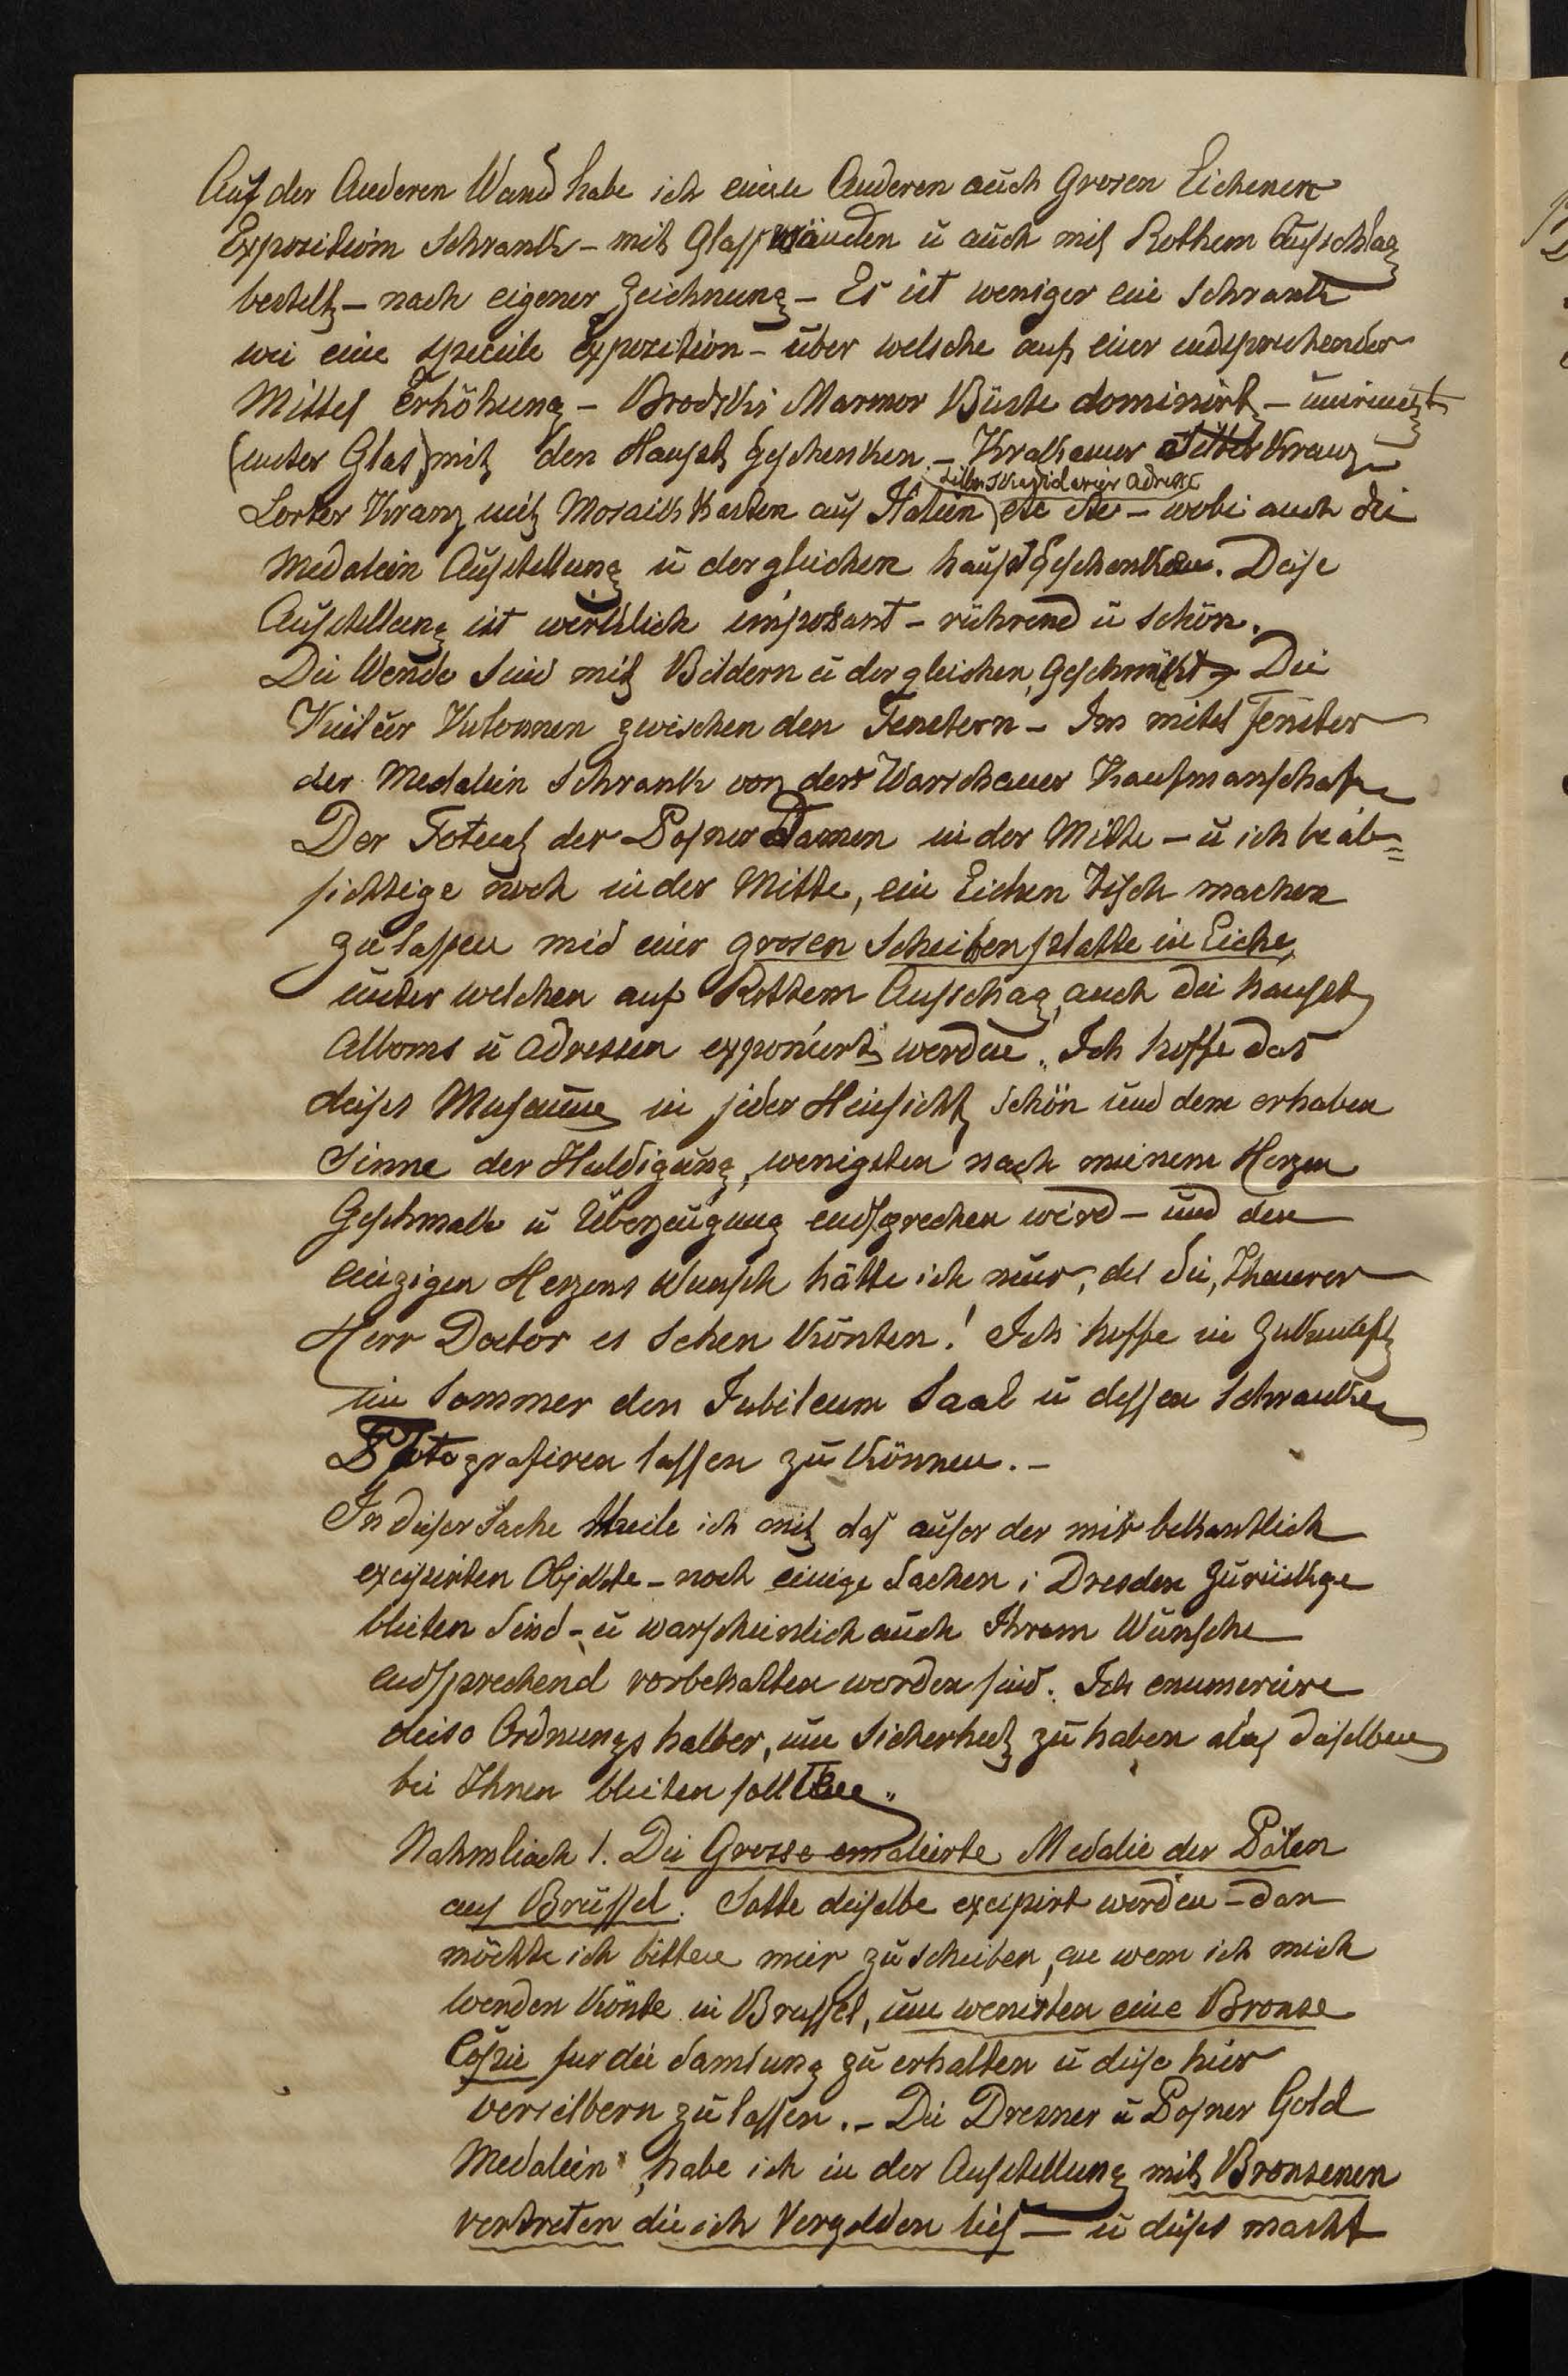 Auf der Anderen Wand habe ich einen Anderen auch Grosen Eichenen
Exposition Schrank – mit Glasswänden ü auch mit Rothem Aufschlag
bestelt – nach eigener Zeichnung – Es ist weniger ein Schrank
wie eine Exposition – über welsche auf einer endsprechender
Mittel Erhöhung – Brodzkis Marmor Büste dominirt –
(unter Glas) mit den Haupt Geschenken – Krakauer Silber Kranz –
Silber adresse
Lorber Kranz mit Mosaik Kasten aus Italien) etc etc – wobei auch die
Medalein Aufstellung ü dergleichen haupt Geschenken. Deise
Aufstellung ist werklich imposant – rührend ü schön.
Die Wende sind mit Bildern ü dergleichen Geschmükt – Die
zwischen den Fenstern – Im mitel Fenster
der Medalein Schrank von der Warschauer Kaufmanschaft
Der Foteul der Posner Damen in der Mitte – ü ich beab=
sichtige noch in der Mitte, ein Eichen Tisch machen
zu lassen mid einer grosen Scheibenplatte in Eiche,
unter welchen auf Rothem Aufschag, auch die haupt
Alboms ü Adressen exponiert werden. Ich hoffe das
deises Museum in jeder Heinsicht schön und dem erhaben
Sinne der Huldigung, wenigsten nach meinem Herzen
Geschmak ü Überzeugung endsprechen wird – und den
einzigen Herzens Wunsch hätte ich nur, das Sie, Theurer
Herr Doctor es sehen könten! Ich hoffe in Zukunft
im Sommer den Jubileum Saal ü dessen Schranke
Fotografiren lassen zu können. –
In deiser Sache theile ich mit das auser der mir bekantlich
excipirten Objekte – noch einige Sachen i Dresden zurückge
blieben sind – ü warscheinlich auch Ihrem Wunsche
endsprechend vorbehalten worden sind. Ich enumereire
deise Ordnungs halber, um Sicherheit zu haben das daselben
bei Ihnen bleiben sollten.
Nahmliach 1. Die Grosse emaleirte Medalie der Polen
aus Brüssel. Solte deiselbe excipirt werden – dan
möchte ich bitten mir zu scheiben, an wem ich mich
wenden könte in Brussel, um wenisten eine Bronse
Copie fur die Samlung zu erhalten ü diese hier
versilbern zu lassen. – Die Dresner ü Posner Gold
Medalein, habe ich in der Aufstellung mit Bronsenen
vertreten die ich Vergolden lies – ü dises macht